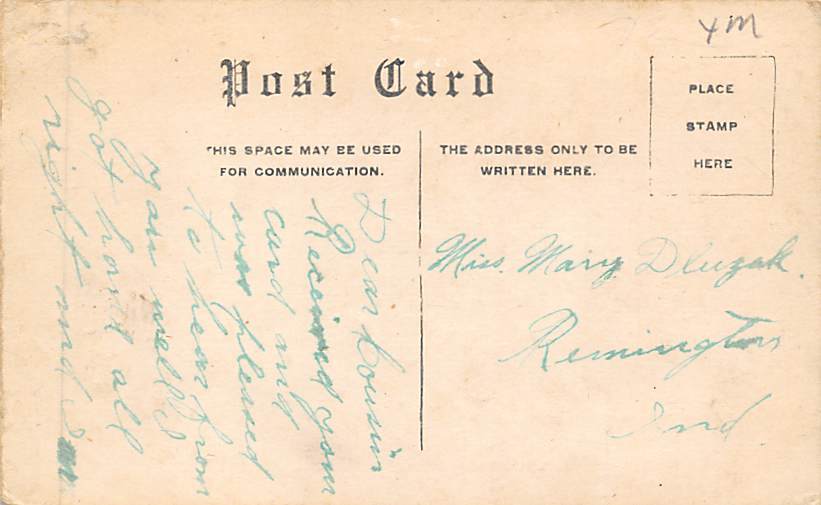 YM
Post Card
PLACE
STAMP
HERE
THIS SPACE MAY BE USED
FOR COMMUNICATION.
THE ADDRESS ONLY TO BE
WRITTEN HERE.
Dear Cousin
Received your
card and
was pleased
to hear from
you well I
got home all
right and
Miss. Mary Dluzak.
Remington
Ind.